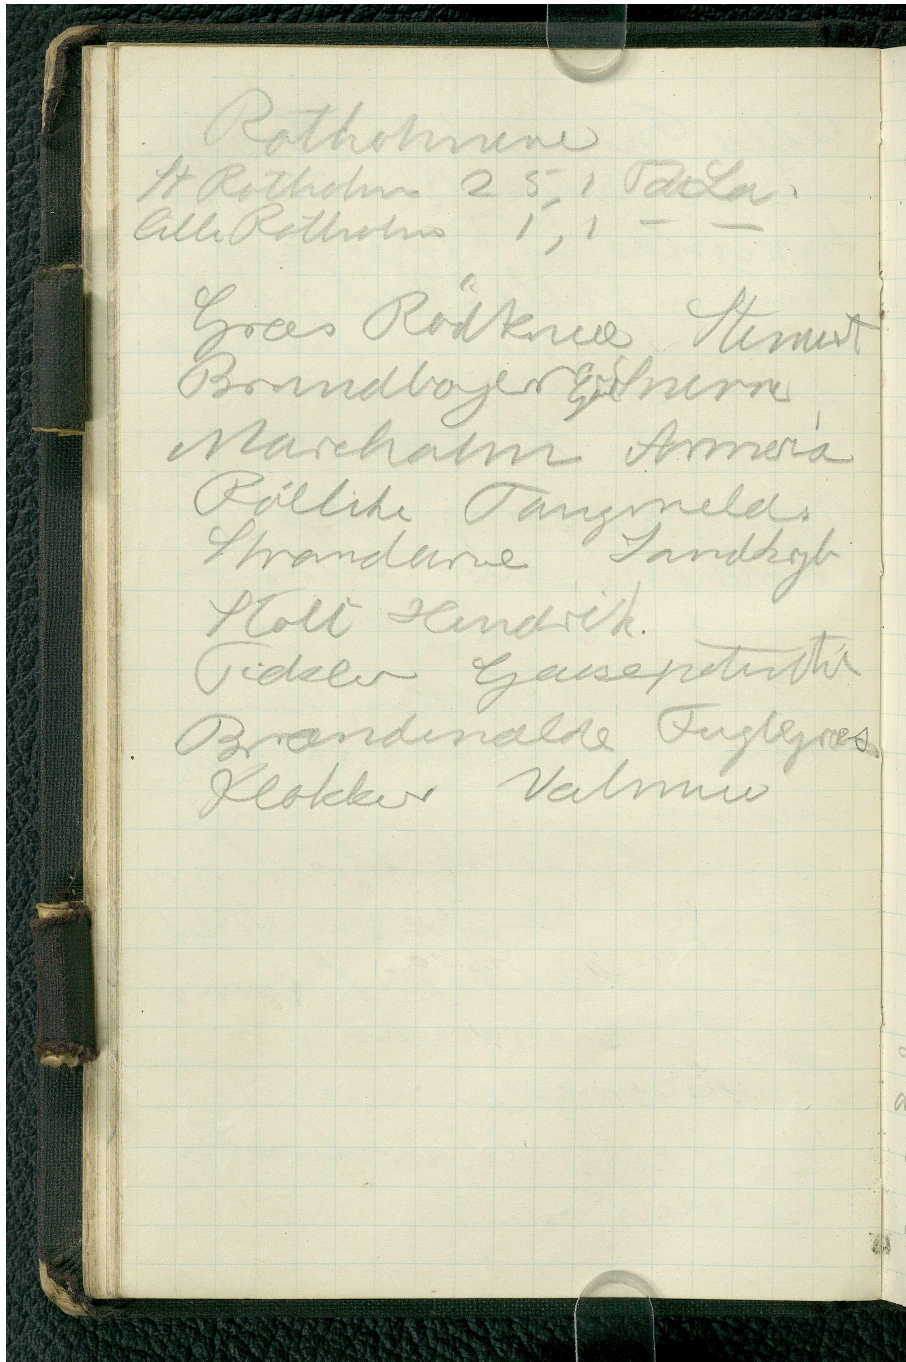 Rotholmene
St Rotholm 2 5, 1 Td Ld.
Lille Rotholm 1, 1 — —
Græs Rödknæ Stenurt
Brandbæger Snerre
Marehalm Armeria
Röllike Tangmeld.
Strandarve Sandkryb
Stolt Hendrik.
Tidsler Gaasepotentil
Brændenælde Fuglegræs
Klokker Valmue